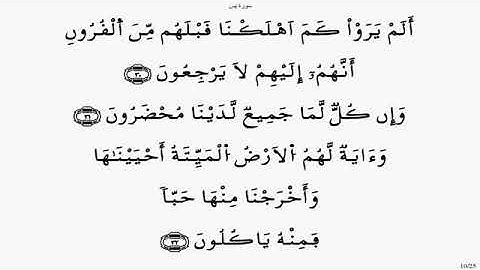 سورة يس
أَلَمْ يَرَوْاْ كَمَ اَهْلَكْنَا قَبْلَهُم مِّنَ اَ۬لْقُرُونِ
أَنَّهُمُۥٓ إِلَيْهِمْ لَا يَرْجِعُونَ ٣٠
وَإِن كُلّٞ لَّمَا جَمِيعٞ لَّدَيْنَا مُحْضَرُونَ ٣١
وَءَايَةٞ لَّهُمُ اُ۬لَارْضُ اُ۬لْمَيِّتَةُ أَحْيَيْنَٰهَا
وَأَخْرَجْنَا مِنْهَا حَبّاٗ
فَمِنْهُ يَاكُلُونَ ٣٢
10/25